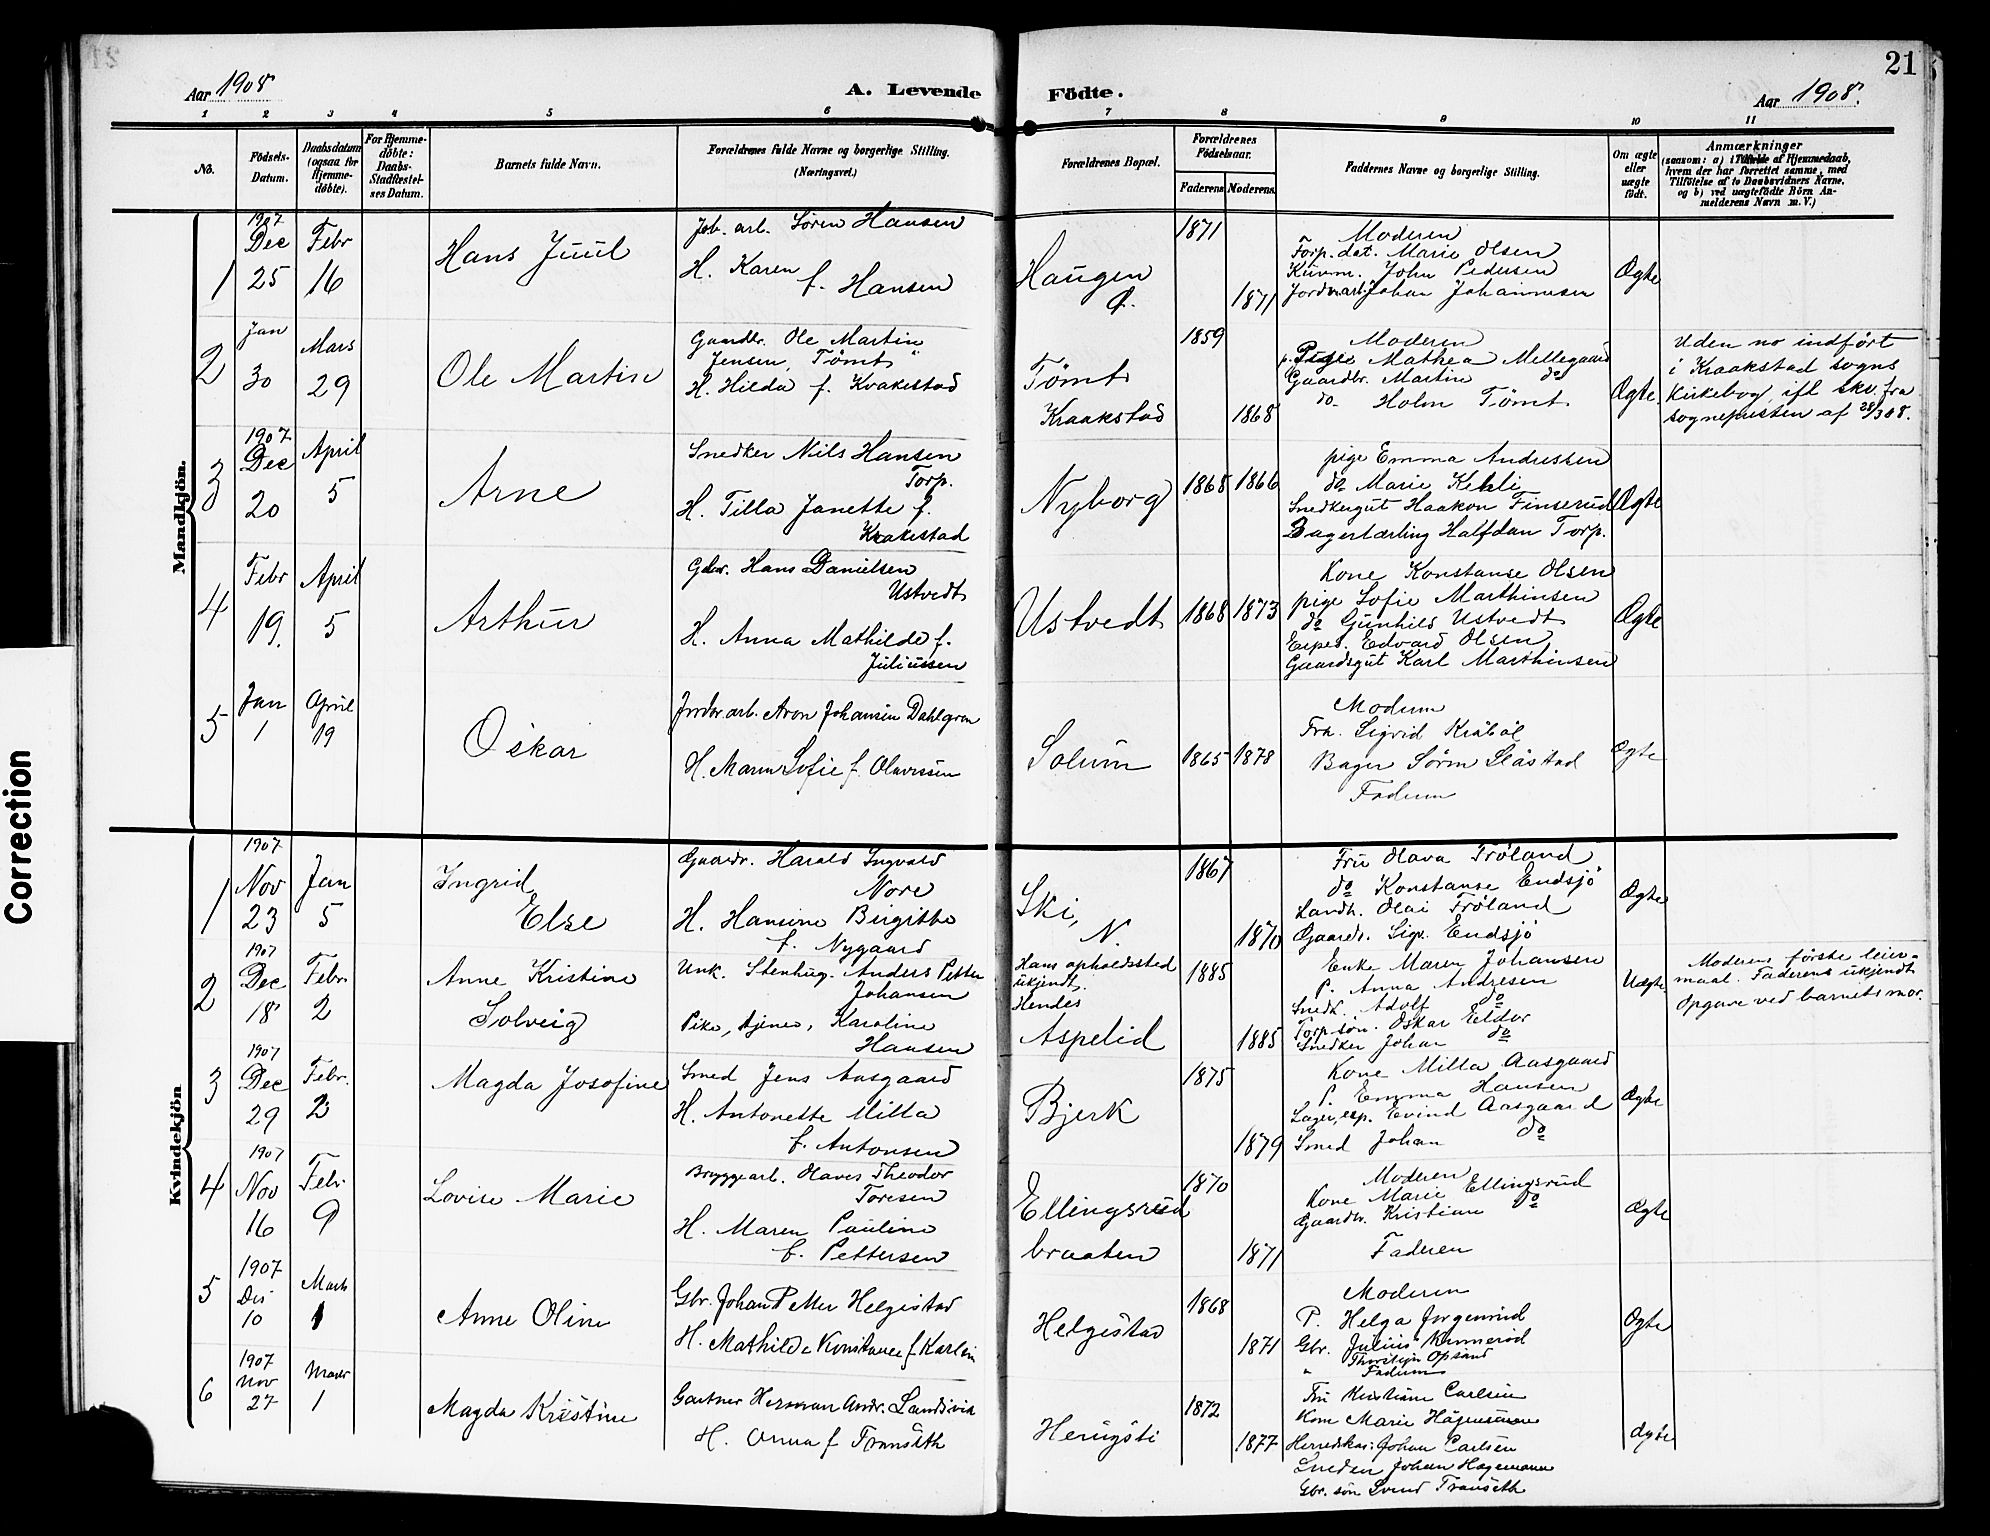 21
Aar 1908
A. Levende Födte.
Aar 1908.
1 2 3 4 5 6 7 8 9 10 11
No.
Födsels-
Datum.
Daabsdatum
(ogsaa for
Hjemme-
döbte).
For Hjemme-
döbte:
Daabs-
Stadfæstel-
ses Datum.
Barnets fulde Navn.
Forældrenes fulde Navne og borgerlige Stilling.
(Næringsvei.)
Forældrenes Bopæl.
Forældrenes
Födselsaar.
Faderens.
Moderens.
Faddernes Navne og borgerlige Stilling.
Om ægte
eller
uægte
födt.
Anmærkninger
(saasom: a) i Tilfælde af Hjemmedaab,
hvem der har forrettet samme, med
Tilföielse af to Daabsvidners Navne,
og b) ved uægtefödte Börn An-
melderens Navn m. V.)
Mandkjön.
1
1907
Dec
25
Febr
16
Hans Juul
Job. arb. Sören Hansen
H. Karen
f. Hansen
Haugen
Ø.
1871
1871
Moderen
Torp. dat. Marie Olsen
Kunm. John Pedersen
Jordarb. Johan Johannesen
Ægte
2
Jan
30
Mars
29
Ole Martin
Gaardbr. Ole Martin
Jensen, Tömt
H. Hilda f. Kvakestad
Tömt
Kraakstad
1859
1868
Moderen
Pige Mathea Mellegaard
Gaardbr. Martin do
do. Holm Tömt
Ægte.
Uden no indfört
i Kraakstad sogns
Kirkebog, ifl skr. fra
sognepresten af 28/3 08.
3
1907
Dec
20
April
5
Arne
Snedker Nils Hansen
Torp.
H. Tilla Janette f.
Kvakestad
Nyborg
1868
1866
pige Emma Andressen
do Marie Kehli
Snedkergut Haakon Finserud
Bagerlærling Halfdan Torp.
Ægte
4
Febr
19.
April
5
Arthur
Gbr. Hans Danielsen
Ustvedt
H. Anna Mathilde f.
Juliussen
Ustvedt
1868
1873
Kone Konstanse Olsen
pige Sofie Marthinsen
do Gunhild Ustvedt
Exped. Edvard Olsen
Gaardsgut Karl Marthinsen
Ægte
5
Jan
1
April
19
Oskar
Jordarb. Aron Johansen Dahlgren
H. Maren Sofie f. Olavessen
Solum
1865
1878
Moderen
Frk. Sigrid Kråböl
Bager Sören Slåstad
Faderen
Ægte
Kvindekjön
1
1907
Nov
23
Jan
5
Ingrid
Else
Gaardr. Harald Ingvald
Nore
H. Hansine Birgitte
f. Nygaard
Ski,
N.
1867
1870
Fru Olava Fröland
do Konstanse Endsjö
Landh. Olai Fröland
Gaardr. Sigv. Endsjö
Ægte
2
1907
Dec
18
Febr.
2
Anne Kristine
Solveig
Unk. Stenhug. Anders Petter
Johansen
Pike, tjener, Karoline
Hansen
Hans opholdssted
ukjendt.
Hendes
Aspelid
1885
1885
Enke Maren Johansen
P. Anna Andresen
Snedk. Adolf do
Torpsön. Oskar Eldor
Snedker Johan do
Uægte
Moderens förste leier-
maal. Faderens ukjendt
Opgave ved barnets mor.
3
1907
Dec
29
Febr.
2
Magda Josofine
Smed Jens Aasgaard
H. Antonette Milla
f. Antonsen
Bjerk
1875
1879
Kone Milla Aasgaard
P. Emma Hansen
Lager, exp. Evind Aasgaard
Smed Johan do
Ægte
4
1907
Nov
16
Febr.
9
Lovise Marie
Bryggearb. Olaves Theodor
Toresen
H. Maren Pauline
f. Pettersen
Ellingsrud
braaten
1870
1871
Moderen
Kone Marie Ellingsrud
Gaardbr. Kristian do
Faderen
Ægte
5
1907
Des
10
Marts
1
Anne Oline
Gbr. Johan Petter Helgestad
H. Mathilde Konstance f. Karlsen
Helgestad
1868
1871
Moderen
P. Helga Jorgenrud
Gbr. Julius Kinnerod
Thorstein Opsand
" Faderen
Ægte
6
1907
Nov
27
Marts
1
Magda Kristine
Gartner Herman Andr. Landsvik
H. Anna f. Transeth
Herugsti
1872
1877
Fru Kristiane Carlsen
Kone Marie Hågensen
Herredskas: Johan Carlsen
Sneden Johan Hagemann
Gbr. sön Svend Transeth
Ægte
Correction